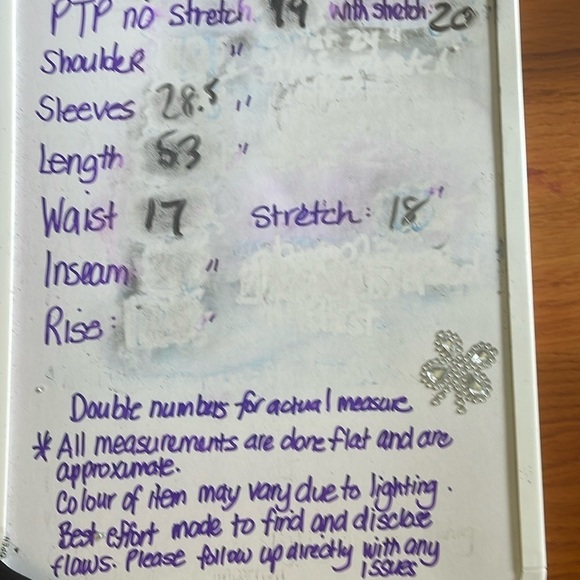 PTP no stretch. 19 with stretch: 20
Shoulder "
Sleeves 28.5 "
Length 53 "
Waist 17 Stretch: 18"
Inseam: "
Rise: "
Double numbers for actual measure
* All measurements are done flat and are
approximate.
Colour of item may vary due to lighting.
Best effort made to find and disclose
flaws. Please follow up directly with any
issues
OPEN